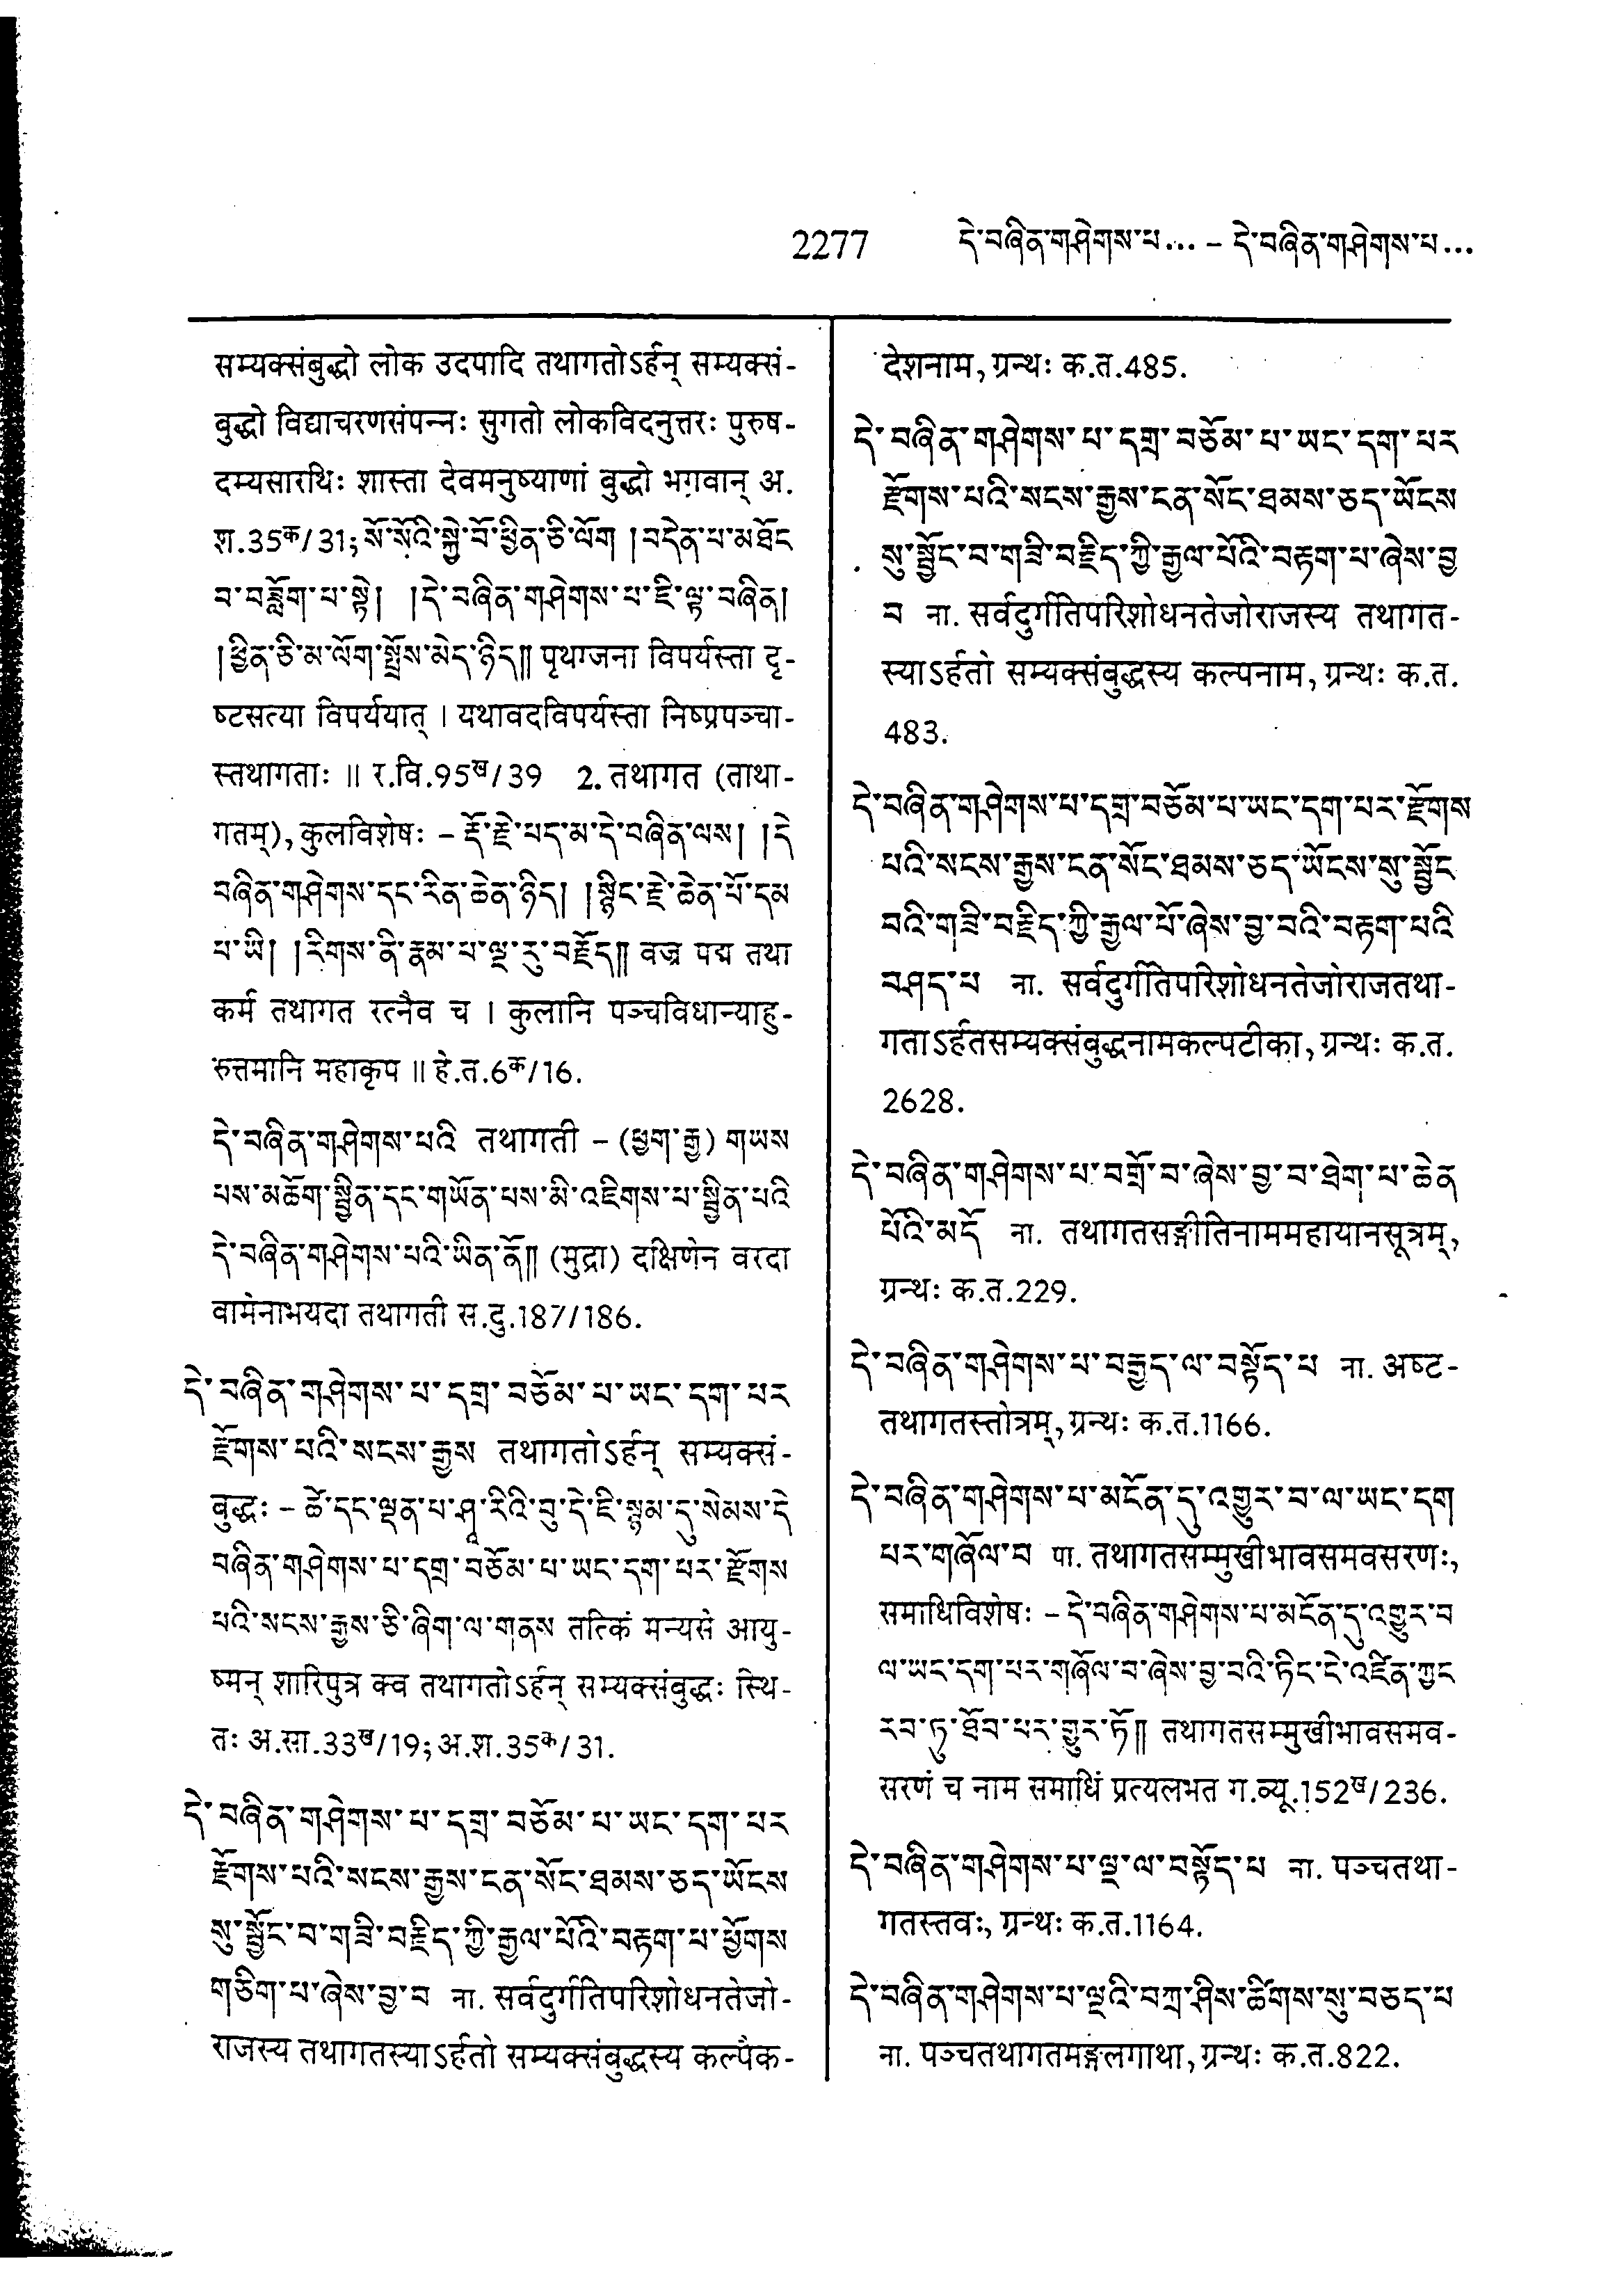 2277 དེ་བཞིན་གཤེགས་པ... – དེ་བཞིན་གཤེགས་པ...
सम्यक्संबुद्धो लोक उदपादि तथागतोऽर्हन् सम्यक्सं-
बुद्धो विद्याचरणसंपन्नः सुगतो लोकविदनुत्तरः पुरुष-
दम्यसारथिः शास्ता देवमनुष्याणां बुद्धो भगवान् अ.
श.35क/31; སོ་སོའི་སྐྱེ་བོ་ཕྱིན་ཅི་ལོག །བདེན་པ་མཐོང
བ་བཟློག་པ་སྟེ། །དེ་བཞིན་གཤེགས་པ་ཇི་ལྟ་བཞིན།
།ཕྱིན་ཅི་མ་ལོག་སྤྲོས་མེད་ཉིད།། पृथग्जना विपर्यस्ता दृ-
ष्टसत्या विपर्ययात् । यथावदविपर्यस्ता निष्प्रपञ्चा-
स्तथागताः ॥ र.वि.95ख/39 2. तथागत (ताथा-
गतम्), कुलविशेषः – རྡོ་རྗེ་པད་མ་དེ་བཞིན་ལས། །དེ
བཞིན་གཤེགས་དང་རིན་ཆེན་ཉིད། །སྙིང་རྗེ་ཆེན་པོ་དམ
པ་ཡི། །རིགས་ནི་རྣམ་པ་ལྔ་རུ་བརྗོད།། वज्र पद्म तथा
कर्म तथागत रत्नैव च । कुलानि पञ्चविधान्याहु-
रुत्तमानि महाकृप ॥ हे.त.6क/16.
དེ་བཞིན་གཤེགས་པའི तथागती – (ཕྱག་རྒྱ) གཡས
པས་མཆོག་སྦྱིན་དང་གཡོན་པས་མི་འཇིགས་པ་སྦྱིན་པའི
དེ་བཞིན་གཤེགས་པའི་ཡིན་ནོ།། (मुद्रा) दक्षिणेन वरदा
वामेनाभयदा तथागती स.दु.187/186.
དེ་བཞིན་གཤེགས་པ་དགྲ་བཅོམ་པ་ཡང་དག་པར
རྫོགས་པའི་སངས་རྒྱས तथागतोऽर्हन् सम्यक्सं-
बुद्धः – ཚེ་དང་ལྡན་པ་ཤཱ་རིའི་བུ་དེ་ཇི་སྙམ་དུ་སེམས་དེ
བཞིན་གཤེགས་པ་དགྲ་བཅོམ་པ་ཡང་དག་པར་རྫོགས
པའི་སངས་རྒྱས་ཅི་ཞིག་ལ་གནས तत्किं मन्यसे आयु-
ष्मन् शारिपुत्र क्व तथागतोऽर्हन् सम्यक्संबुद्धः स्थि-
तः अ.सा.33ख/19; अ.श.35क/31.
དེ་བཞིན་གཤེགས་པ་དགྲ་བཅོམ་པ་ཡང་དག་པར
རྫོགས་པའི་སངས་རྒྱས་ངན་སོང་ཐམས་ཅད་ཡོངས
སུ་སྦྱོང་བ་གཟི་བརྗིད་ཀྱི་རྒྱལ་པོའི་བརྟག་པ་ཕྱོགས
གཅིག་པ་ཞེས་བྱ་བ ना. सर्वदुर्गतिपरिशोधनतेजो-
राजस्य तथागतस्याऽर्हतो सम्यक्संबुद्धस्य कल्पैक-
देशनाम, ग्रन्थः क.त.485.
དེ་བཞིན་གཤེགས་པ་དགྲ་བཅོམ་པ་ཡང་དག་པར
རྫོགས་པའི་སངས་རྒྱས་ངན་སོང་ཐམས་ཅད་ཡོངས
སུ་སྦྱོང་བ་གཟི་བརྗིད་ཀྱི་རྒྱལ་པོའི་བརྟག་པ་ཞེས་བྱ
བ ना. सर्वदुर्गतिपरिशोधनतेजोराजस्य तथागत-
स्याऽर्हतो सम्यक्संबुद्धस्य कल्पनाम, ग्रन्थः क.त.
483.
དེ་བཞིན་གཤེགས་པ་དགྲ་བཅོམ་པ་ཡང་དག་པར་རྫོགས
པའི་སངས་རྒྱས་ངན་སོང་ཐམས་ཅད་ཡོངས་སུ་སྦྱོང
བའི་གཟི་བརྗིད་ཀྱི་རྒྱལ་པོ་ཞེས་བྱ་བའི་བརྟག་པའི
བཤད་པ ना. सर्वदुर्गतिपरिशोधनतेजोराजतथा-
गताऽर्हतसम्यक्संबुद्धनामकल्पटीका, ग्रन्थः क.त.
2628.
དེ་བཞིན་གཤེགས་པ་བགྲོ་བ་ཞེས་བྱ་བ་ཐེག་པ་ཆེན
པོའི་མདོ ना. तथागतसङ्गीतिनाममहायानसूत्रम्,
ग्रन्थः क.त.229.
དེ་བཞིན་གཤེགས་པ་བརྒྱད་ལ་བསྟོད་པ ना. अष्ट-
तथागतस्तोत्रम्, ग्रन्थः क.त.1166.
དེ་བཞིན་གཤེགས་པ་མངོན་དུ་འགྱུར་བ་ལ་ཡང་དག
པར་གཞོལ་བ पा. तथागतसम्मुखीभावसमवसरणः,
समाधिविशेषः – དེ་བཞིན་གཤེགས་པ་མངོན་དུ་འགྱུར་བ
ལ་ཡང་དག་པར་གཞོལ་བ་ཞེས་བྱ་བའི་ཏིང་ངེ་འཛིན་ཀྱང
རབ་ཏུ་ཐོབ་པར་གྱུར་ཏོ།། तथागतसम्मुखीभावसमव-
सरणं च नाम समाधिं प्रत्यलभत ग.व्यू.152ख/236.
དེ་བཞིན་གཤེགས་པ་ལྔ་ལ་བསྟོད་པ ना. पञ्चतथा-
गतस्तवः, ग्रन्थः क.त.1164.
དེ་བཞིན་གཤེགས་པ་ལྔའི་བཀྲ་ཤིས་ཚིགས་སུ་བཅད་པ
ना. पञ्चतथागतमङ्गलगाथा, ग्रन्थः क.त.822.